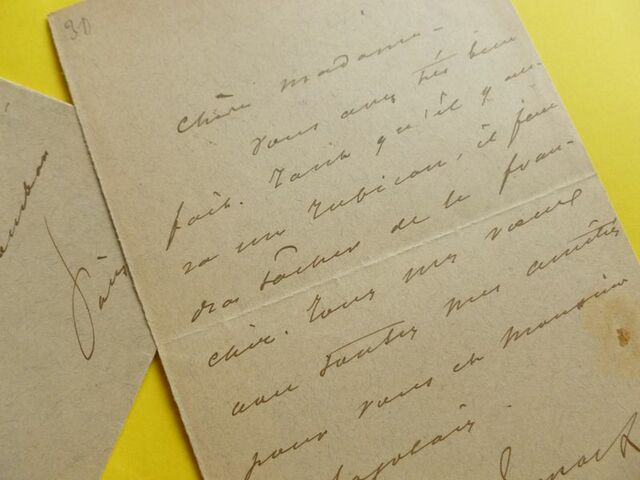 30
Chère madame.
vous avez très bien
fait. Tant qu'il y au-
ra un Rubicon, il fau
dra tâcher de le fran-
chir. Tous mes vœux
avec toutes mes amitiés
pour vous et monsieur